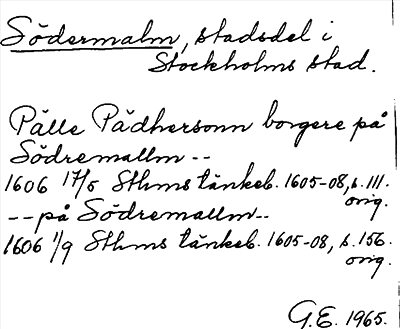 Södermalm, stadsdel i
Stockholms stad.
Pålle Pådhersonn borgere på
Södremallm --
1606 17/5 Sthms tänkeb. 1605-08, s. 111.
orig.
-- på Södremallm --
1606 1/9 Sthms tänkeb. 1605-08, s. 156.
orig.
G.E. 1965.